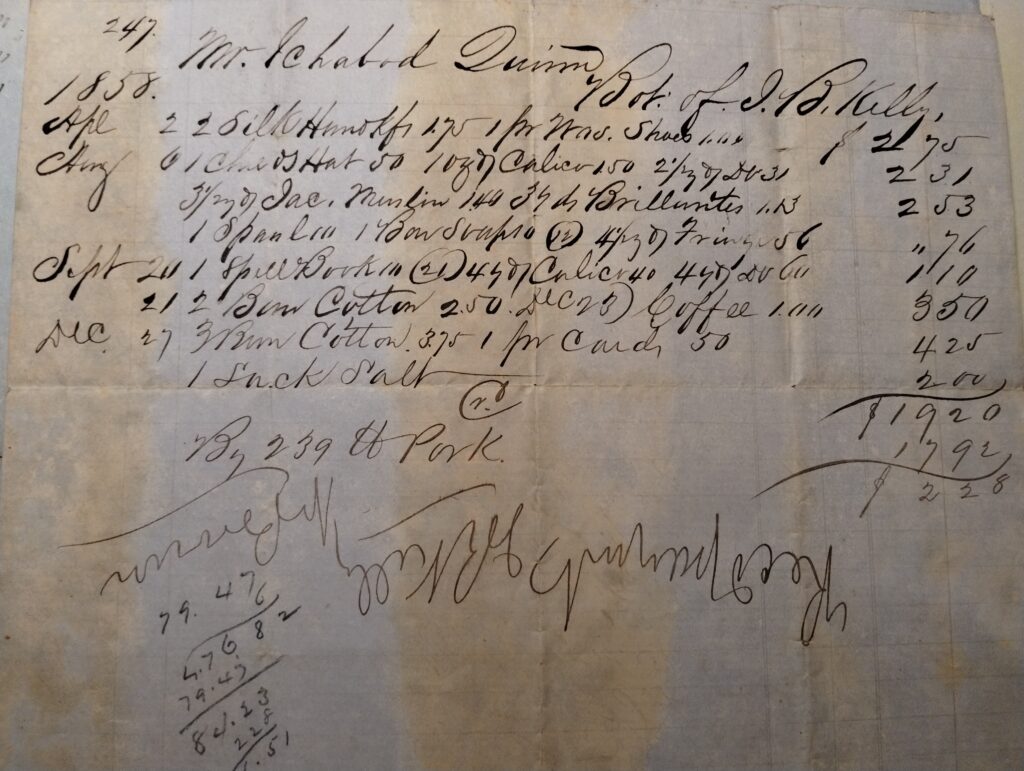 247.
Mr. Ichabod Quinn
Bot. of J. B. Kelly,
1858.
Apl 2 2 Silk Handkfs 1.75 1 pr Wos. Shoes 1.00 $ 2 75
Aug 6 1 Childs Hat 50 10 yd Calico 1.50 2½ yd Do 31 2 31
3½ yd Jac. Muslin 1.40 3¾ yds Brillantes 1.13 2 53
1 Spaul 10 1 Box Soap 10 (12) 4½ yd Fringe 56 " 76
Sept 20 1 Spell Book 10 (21) 4 yd Calico 40 4 yd Do 60 1 10
21 2 Bun Cotton 2.50 Dec 23) Coffee 1.00 3 50
Dec. 27 3 Bun Cotton 3.75 1 pr Cards 50 4 25
1 Sack Salt 2 00
$ 19 20
By 239 lb Pork. 17 92
$ 2 28
Recd payment J B Kelly
79. 476
4.76. 82
79.47
84.23
228